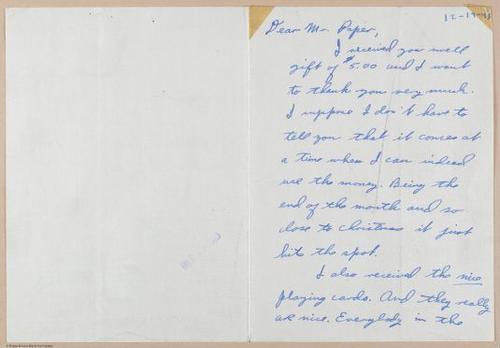 12-17-43
Dear Mr. Paper,
I received you well
gift of $5.00 and I want
to thank you very much.
I suppose I don't have to
tell you that it comes at
a time when I can indeed
use the money. Being the
end of the month and so
close to Christmas it just
hits the spot.
I also received the nice
playing cards. And they really
are nice. Everybody in the